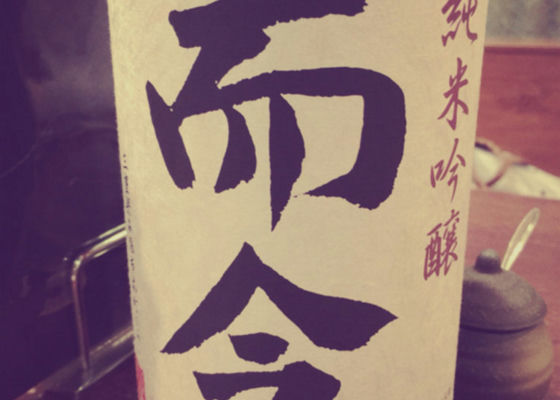 純米吟醸
而今